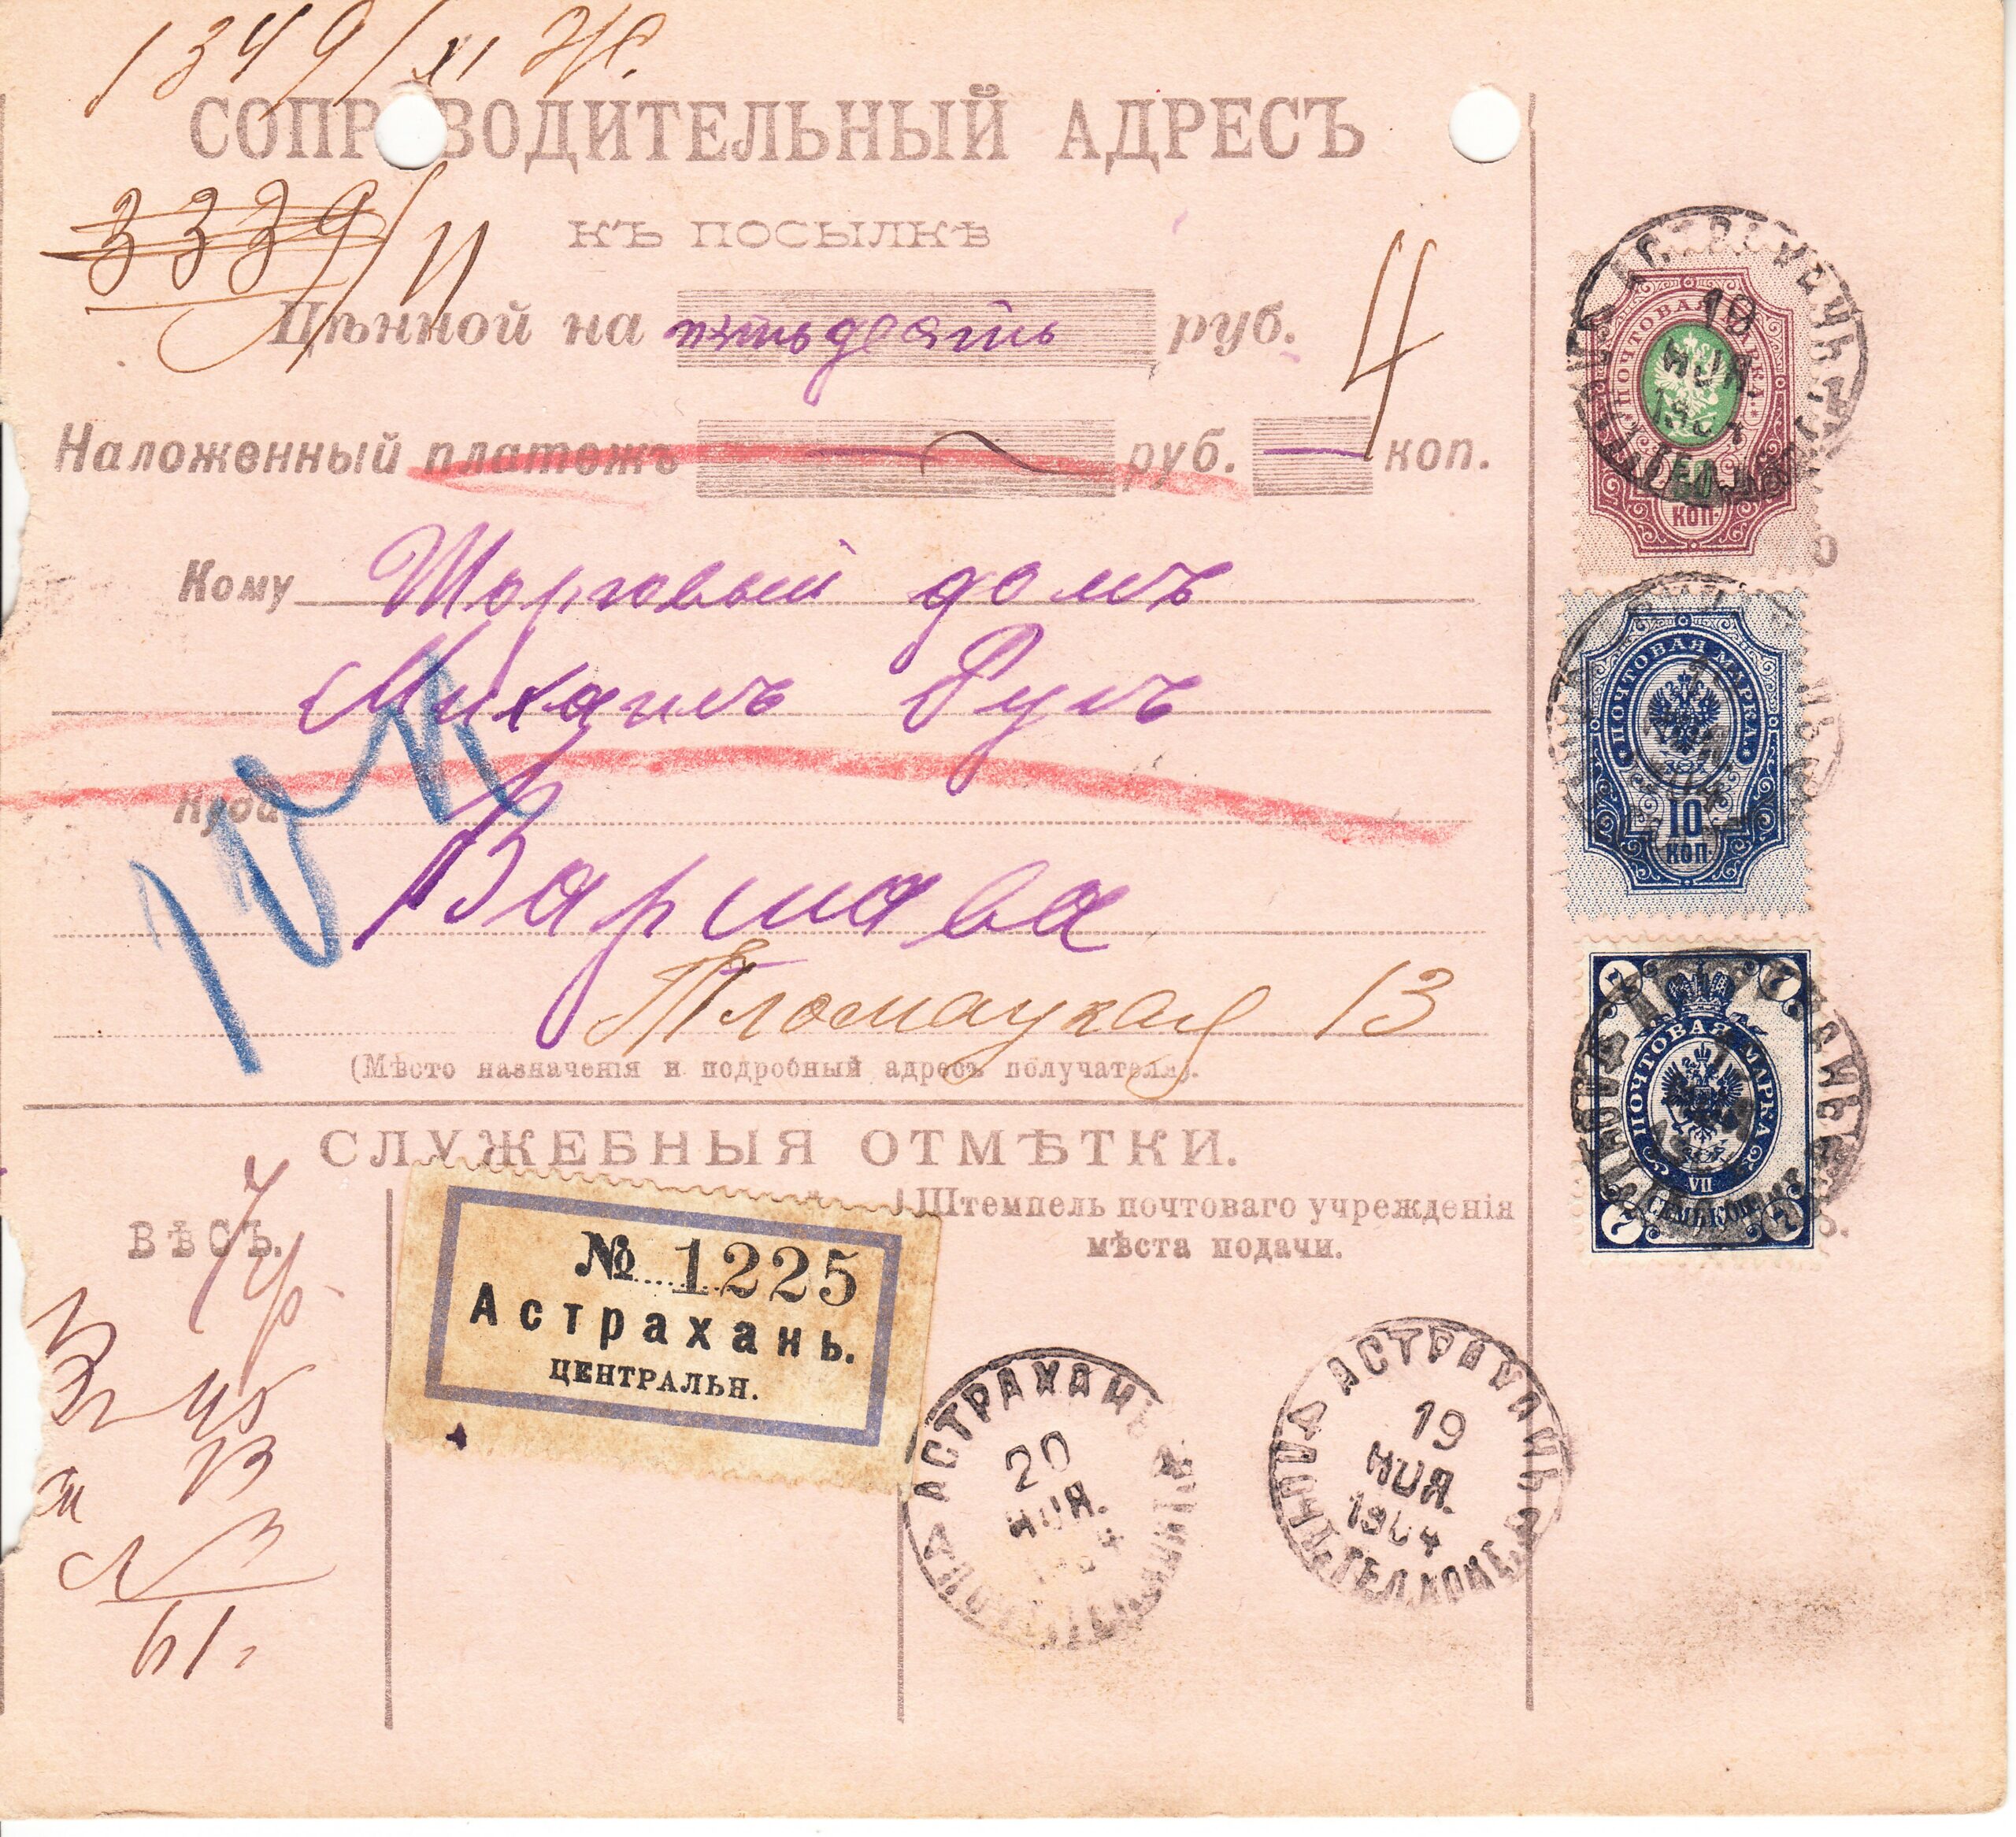 1349/XI
СОПРОВОДИТЕЛЬНЫЙ АДРЕСЪ
3339/11
КЪ ПОСЫЛКѢ
Цѣнной на пятьдесятъ руб.
4
Наложенный платежъ — руб. — коп.
Кому Торговый домъ
Михаилъ Румъ
Куда
Варшава
Тломацкая 13
(Мѣсто назначенія и подробный адресъ получателя).
СЛУЖЕБНЫЯ ОТМѢТКИ.
ВѢСЪ.
61
№ 1225
Астрахань.
ЦЕНТРАЛЬН.
Штемпель почтоваго учрежденія
мѣста подачи.
АСТРАХАНЬ
20
НОЯ.
АСТРАХАНЬ
19
НОЯ.
1904
ПОЧТ. ТЕЛ. КОНТ.
ПОЧТОВАЯ МАРКА
50
КОП.
19
НОЯ
ПОЧТОВАЯ МАРКА
10
КОП.
7 7
ПОЧТОВАЯ МАРКА
VII
СЕМЬ КОП.
7 7